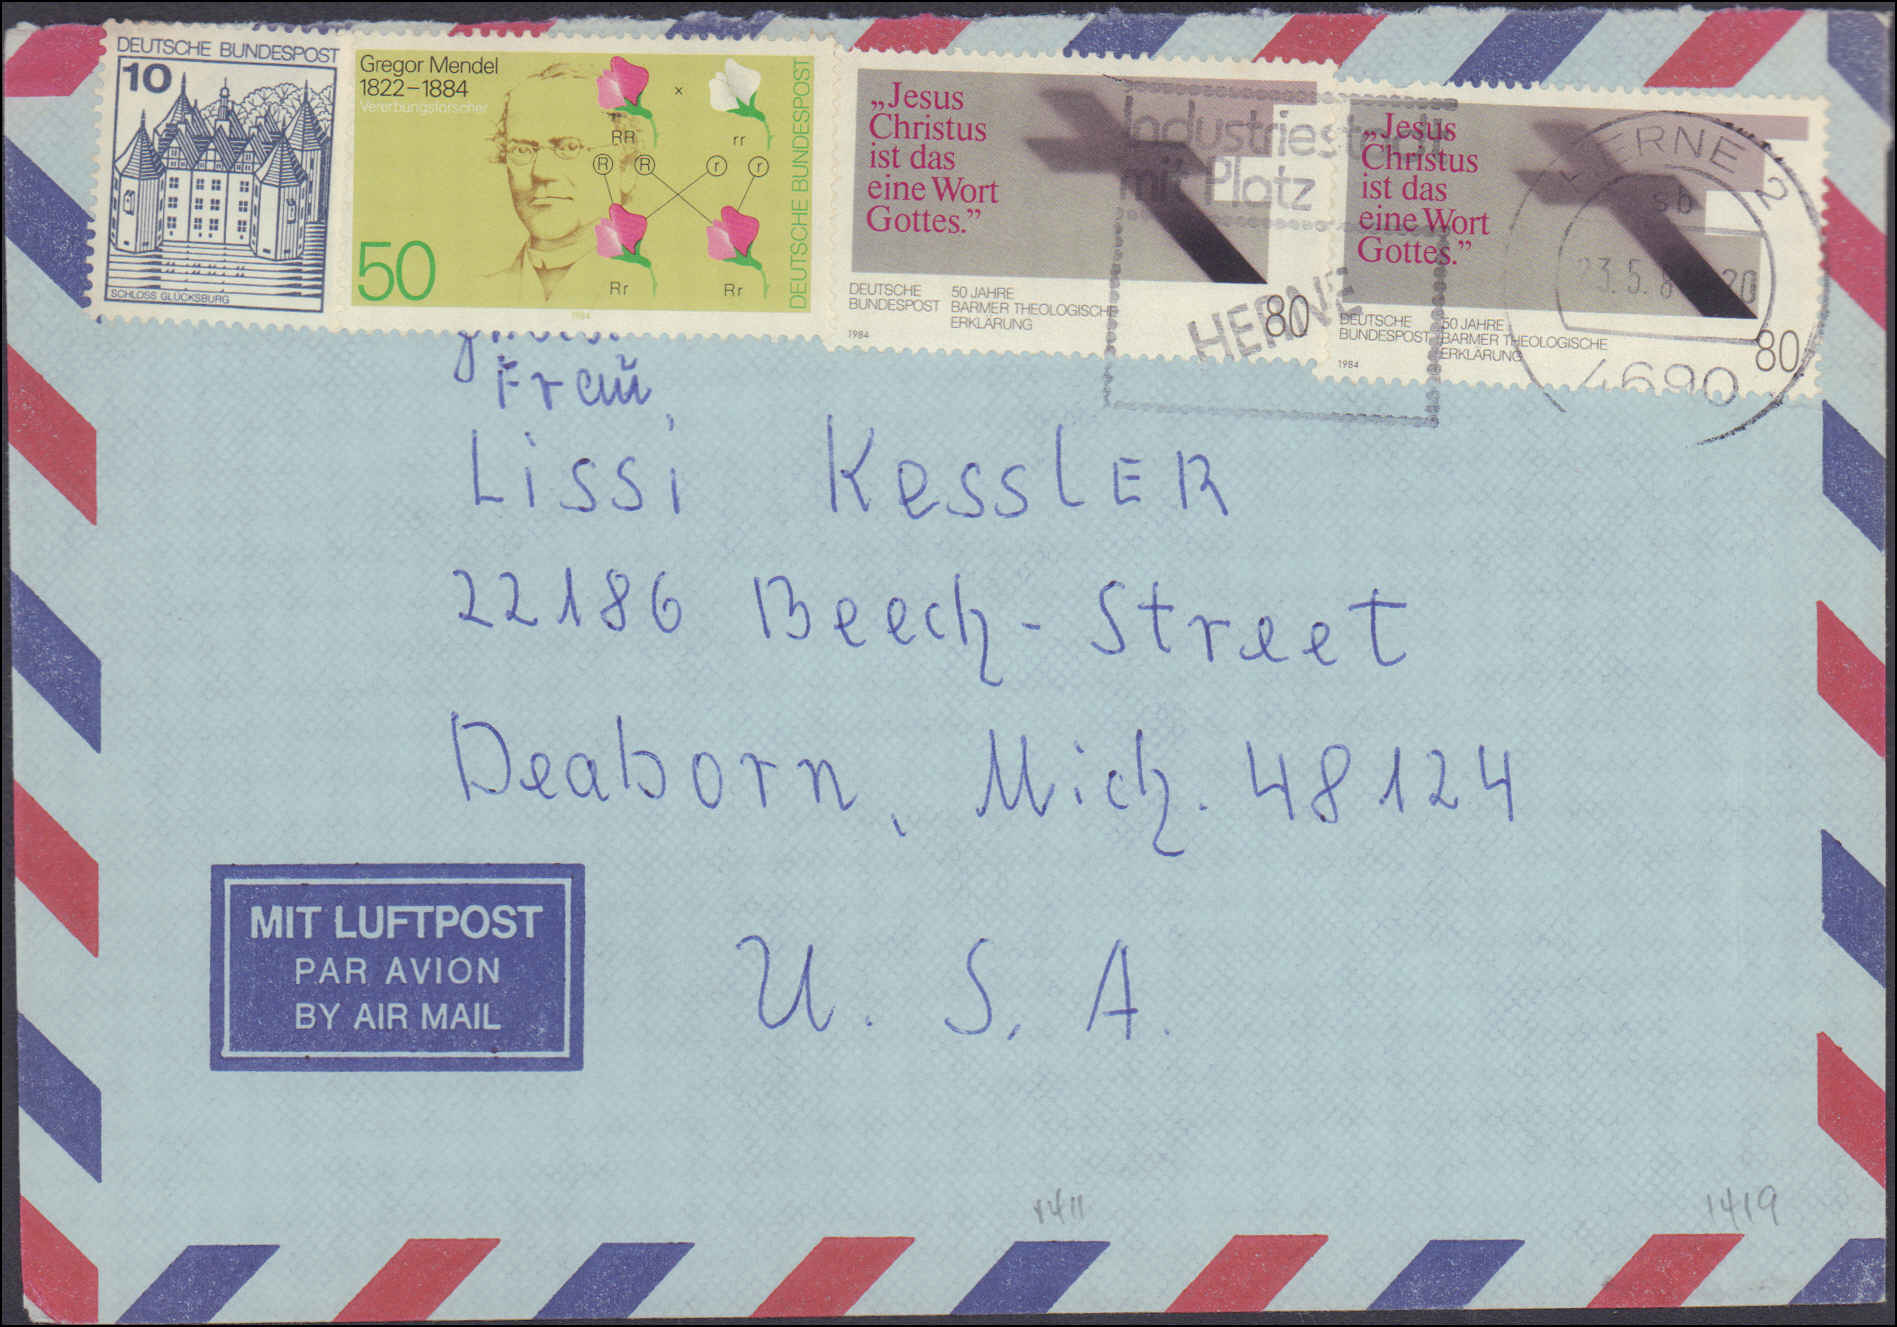 DEUTSCHE BUNDESPOST
10
SCHLOSS GLÜCKSBURG
Gregor Mendel
1822–1884
Vererbungsforscher
RR
x
rr
R
R
r
r
Rr
Rr
50
DEUTSCHE BUNDESPOST
1984
„Jesus
Christus
ist das
eine Wort
Gottes.”
DEUTSCHE
BUNDESPOST
50 JAHRE
BARMER THEOLOGISCHE
ERKLÄRUNG
80
1984
„Jesus
Christus
ist das
eine Wort
Gottes.”
DEUTSCHE
BUNDESPOST
50 JAHRE
BARMER THEOLOGISCHE
ERKLÄRUNG
80
1984
Industriestadt
mit Platz
HERNE
HERNE 2
sb
23.5.8
20
4690
Frau
Lissi KessLER
22186 Beech-Street
Deaborn, Mich. 48124
U. S. A.
MIT LUFTPOST
PAR AVION
BY AIR MAIL
1419